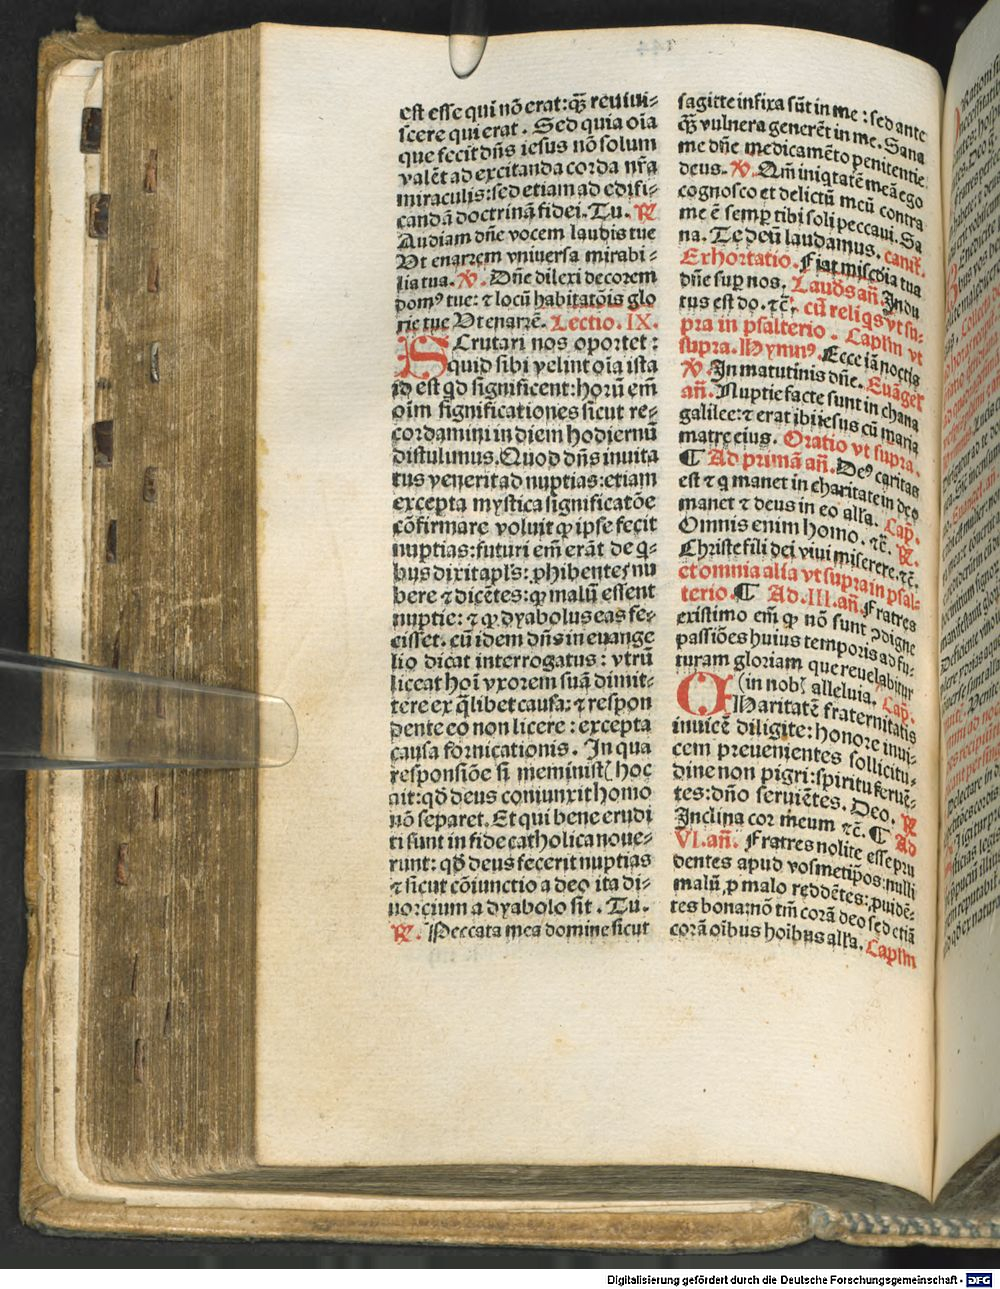 est esse qui nō erat: q̄ꝫ reuiui⸗
scere qui erat. Sed quia oīa
que fecit dn̄s iesus nō solum
valēt ad excitanda corda nr̄a
miraculis: sed etiam ad edifi⸗
candā doctrinā fidei. Tu. ℟
Audiam dn̄e vocem laudis tue
Vt enarrem vniuersa mirabi⸗
lia tua. ℣. Dn̄e dilexi decorem
domꝰ tue: ⁊ locū habitatōis glo
rie tue Vt enarrē. Lectio. IX.
SCrutari nos oportet:
quid sibi velint oīa ista
id est qd̄ significent: horū em̄
oīm significationes sicut re⸗
cordamini in diem hodiernū
distulimus. Quod dn̄s inuita
tus venerit ad nuptias: etiam
excepta mystica significatōe
cōfirmare voluit ꝙ ipse fecit
nuptias: futuri em̄ erāt de q̄⸗
bus dixit apl̄s: ꝓhibentes nu
bere ⁊ dicētes: ꝙ malū essent
nuptie: ⁊ ꝙ dyabolus eas fe⸗
cisset. cū idem dn̄s in euange
lio dicat interrogatus: vtrū
liceat hoī vxorem suā dimit⸗
tere ex q̄libet causa: ⁊ respon
dente eo non licere: excepta
causa fornicationis. In qua
responsiōe si meministꝭ hoc
ait: qd̄ deus coniunxit homo
nō separet. Et qui bene erudi
ti sunt in fide catholica noue⸗
runt: qd̄ deus fecerit nuptias
⁊ sicut cōiunctio a deo ita di⸗
uorcium a dyabolo sit. Tu.
℟. Peccata mea domine sicut
sagitte infixa sūt in me: sed ante
q̄ꝫ vulnera generēt in me. Sana
me dn̄e medicamēto penitentie
deus. ℣. Qm̄ iniqtatē meā ego
cognosco et delictū meū contra
me ē semꝑ tibi soli peccaui. Sa
na. Te deū laudamus. canit̄.
Exhortatio. Fiat misc̄dia tua
dn̄e suꝑ nos. Laudꝭ an̄. Indu
tus est do. ⁊c̄. cū reliqs vt su⸗
pra in psalterio. Capl̄m vt
supra. Hymnꝰ. Ecce iā noctis
℣ In matutinis dn̄e. Euāgel̄
an̄. Nuptie facte sunt in chana
galilee: ⁊ erat ibi iesus cū maria
matre eius. Oratio vt supra.
¶ Ad primā an̄. Deꝰ caritas
est ⁊ q manet in charitate in deo
manet ⁊ deus in eo all̄a. Cap̄.
Omnis enim homo. ⁊c̄. ℟.
Christe fili dei viui miserere. ⁊c̄.
et omnia alia vt supra in psal⸗
terio. ¶ Ad. III. an̄. Fratres
existimo em̄ ꝙ nō sunt ↄdigne
passiōes huius temporis ad fu⸗
turam gloriam que reuelabitur
(in nobꝭ alleluia. Cap̄.
CHaritatē fraternitatis
inuicē diligite: honore inui⸗
cem preuenientes sollicitu⸗
dine non pigri: spiritu feruē⸗
tes: dn̄o seruiētes. Deo. ℟
Inclina cor meum ⁊c̄. ¶ Ad
VI. an̄. Fratres nolite esse pru
dentes apud vosmetip̄os: nulli
malū ꝓ malo reddētes: ꝓuidē⸗
tes bona: nō tm̄ corā deo sed etiā
corā oībus hoībus all̄a. Capl̄m
Digitalisierung gefördert durch die Deutsche Forschungsgemeinschaft - DFG